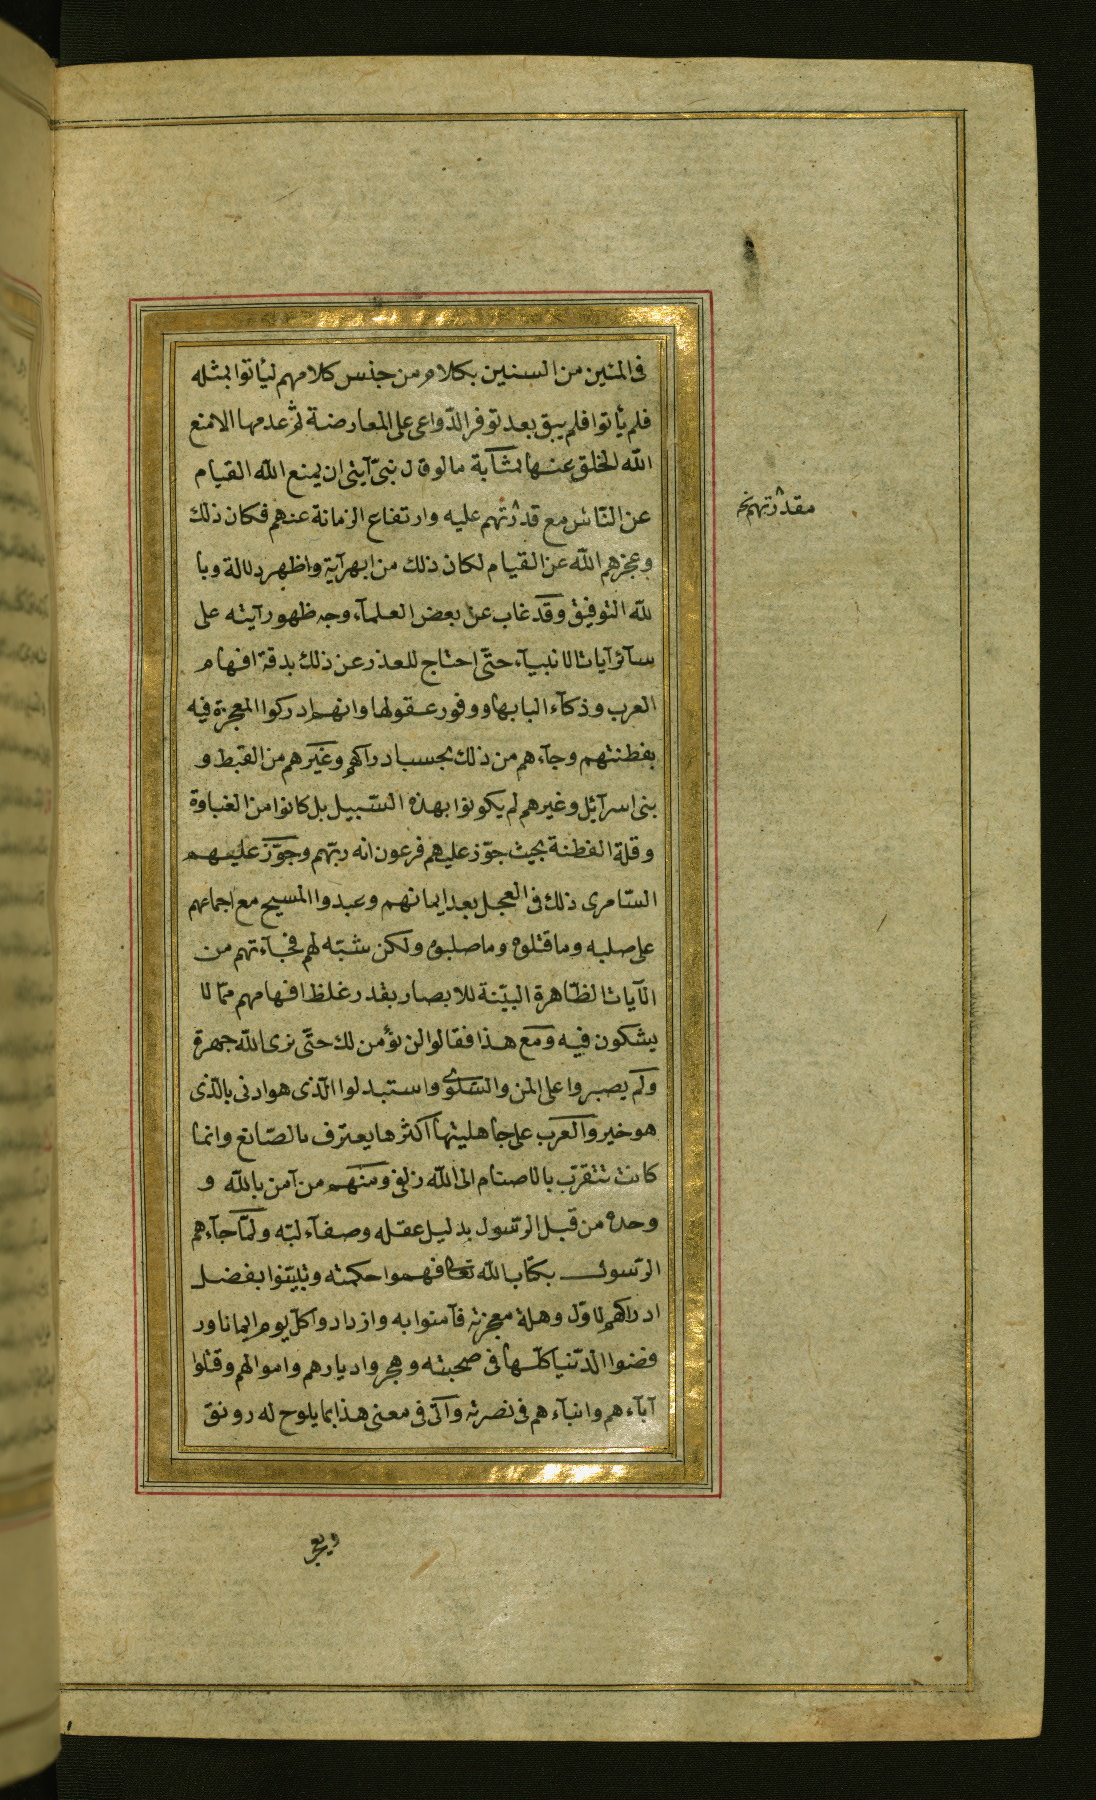 فى المئين من السنين بكلام من جنس كلامهم ليأتوا بمثله
فلم يأتوا فلم يبق بعد توفر الدّواعى على المعارضة ثم عدمها الا منع
الله الخلق عنها بمثابة ما لو قال نبىّ آيتى ان يمنع الله القيام
عن النّاس مع قدرتهم عليه وارتفاع الزمانة عنهم فكان ذلك
مقدرتهم نخ
وعجزهم الله عن القيام لكان ذلك من ابهر آية واظهر دلالة وبا
لله التوفيق وقد غاب عن بعض العلمآء وجه ظهور آيته على
سآئر آيات الانبيآء حتّى احتاج للعذر عن ذلك بدقة افهام
العرب وذكآء البابها ووفور عقولها وانهم ادركوا المعجزة فيه
بفطنتهم وجآءهم من ذلك بحسب ادراكهم وغيرهم من القبط و
بنى اسرآئل وغيرهم لم يكونوا بهذه السّبيل بل كانوا من الغباوة
وقلة الفطنة بحيث جوّز عليهم فرعون انه ربّهم وجوّز عليهم
السّامرى ذلك فى العجل بعد ايمانهم وعبدوا المسيح مع اجماعهم
على صلبه وما قتلوه وما صلبوه ولكن شبّه لهم فجآءتهم من
الآيات الظّاهرة البيّنة للابصار بقدر غلظ افهامهم ممّا لا
يشكون فيه ومع هذا فقالوا لن نؤمن لك حتّى نرى الله جهرة
ولم يصبروا على المن والسّلوى واستبدلوا الّذى هو ادنى بالّذى
هو خير والعرب على جاهليتها اكثرها يعترف بالصّانع وانما
كانت تتقرّب بالاصنام الى الله زلفى ومنهم من آمن بالله و
وحده من قبل الرّسول بدليل عقله وصفآء لبّه ولمّا جآءهم
الرّسول بكتاب الله تعالى فهموا حكمته وتبيّنوا بفضل
ادراكهم لاوّل وهلة معجزته فآمنوا به وازدادوا كلّ يوم ايمانا ور
فضوا الدّنيا كلّها فى صحبته وهجروا ديارهم واموالهم وقتلوا
آبآءهم وابنآءهم فى نصرته وأتى فى معنى هذا بما يلوح له رونق
ويعج